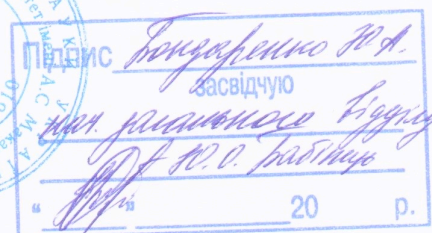 Підпис Бондаренко Ю.А.
засвідчую
нач. загального відділу
Ю.О. Бабінць
“ ” 20 р.
А.С. Мака